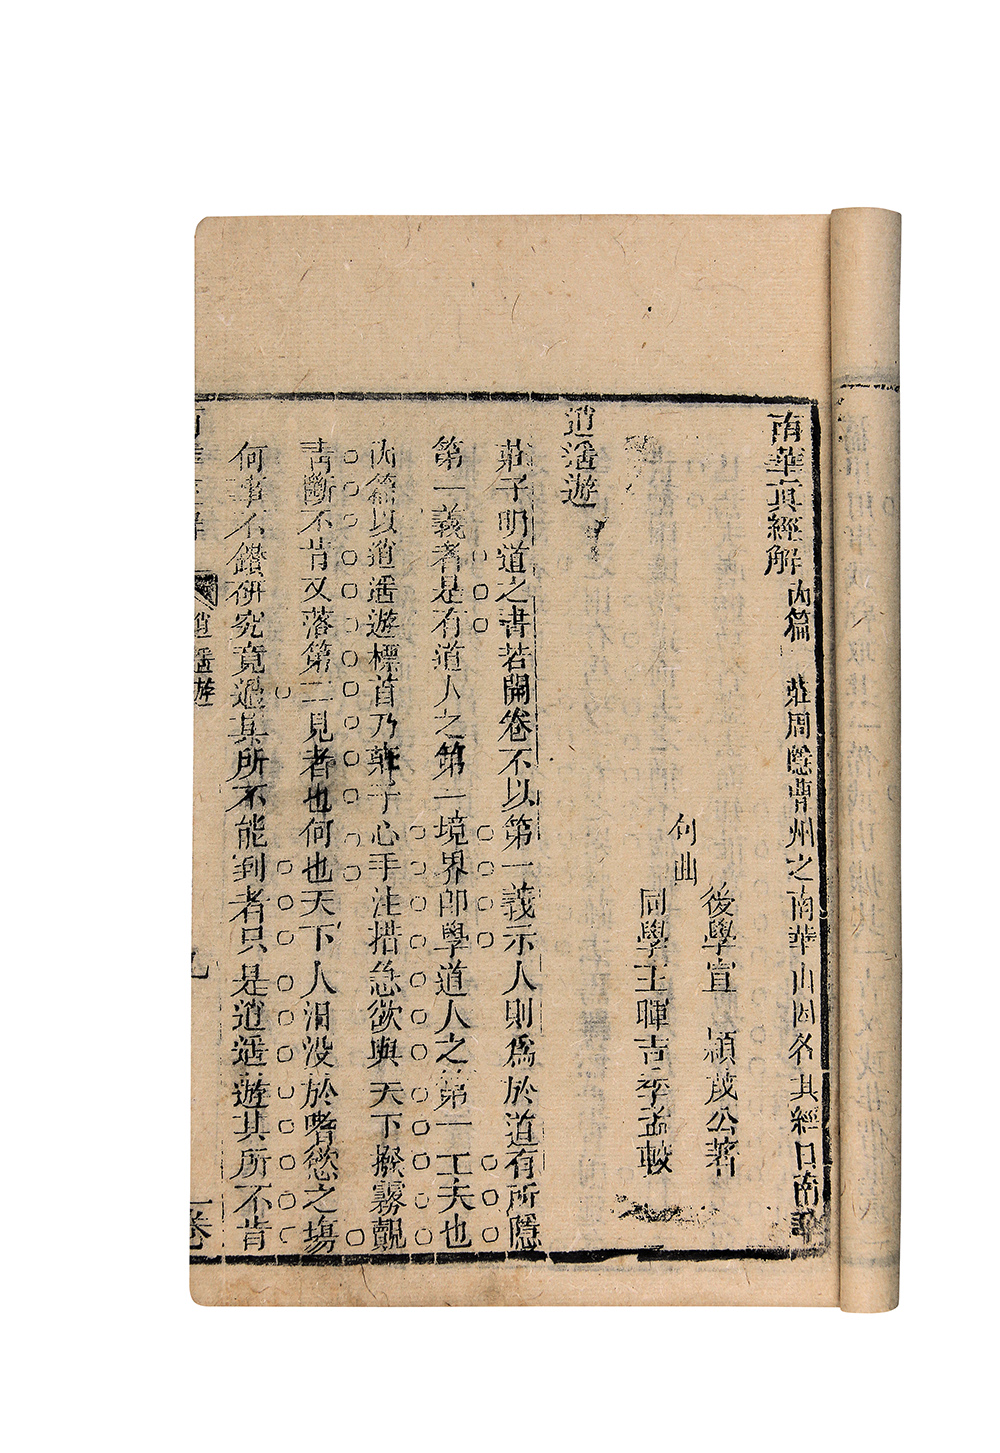 南華真經解內篇 莊周隱曹州之南華山因名其經曰南華
後學宣 穎茂公著
句曲
同學王暉吉季孟較
逍遙遊
莊子明道之書若開卷不以第一義示人則為於道有所隱
第一義者是有道人之第一境界即學道人之第一工夫也
內篇以逍遙遊標首乃莊子心手注措急欲與天下撥霧覩
青斷不肯又落第二見者也何也天下人汨没於嗜慾之場
何事不鑽研究竟過其所不能到者只是逍遙遊其所不肯
逍遙遊
一卷